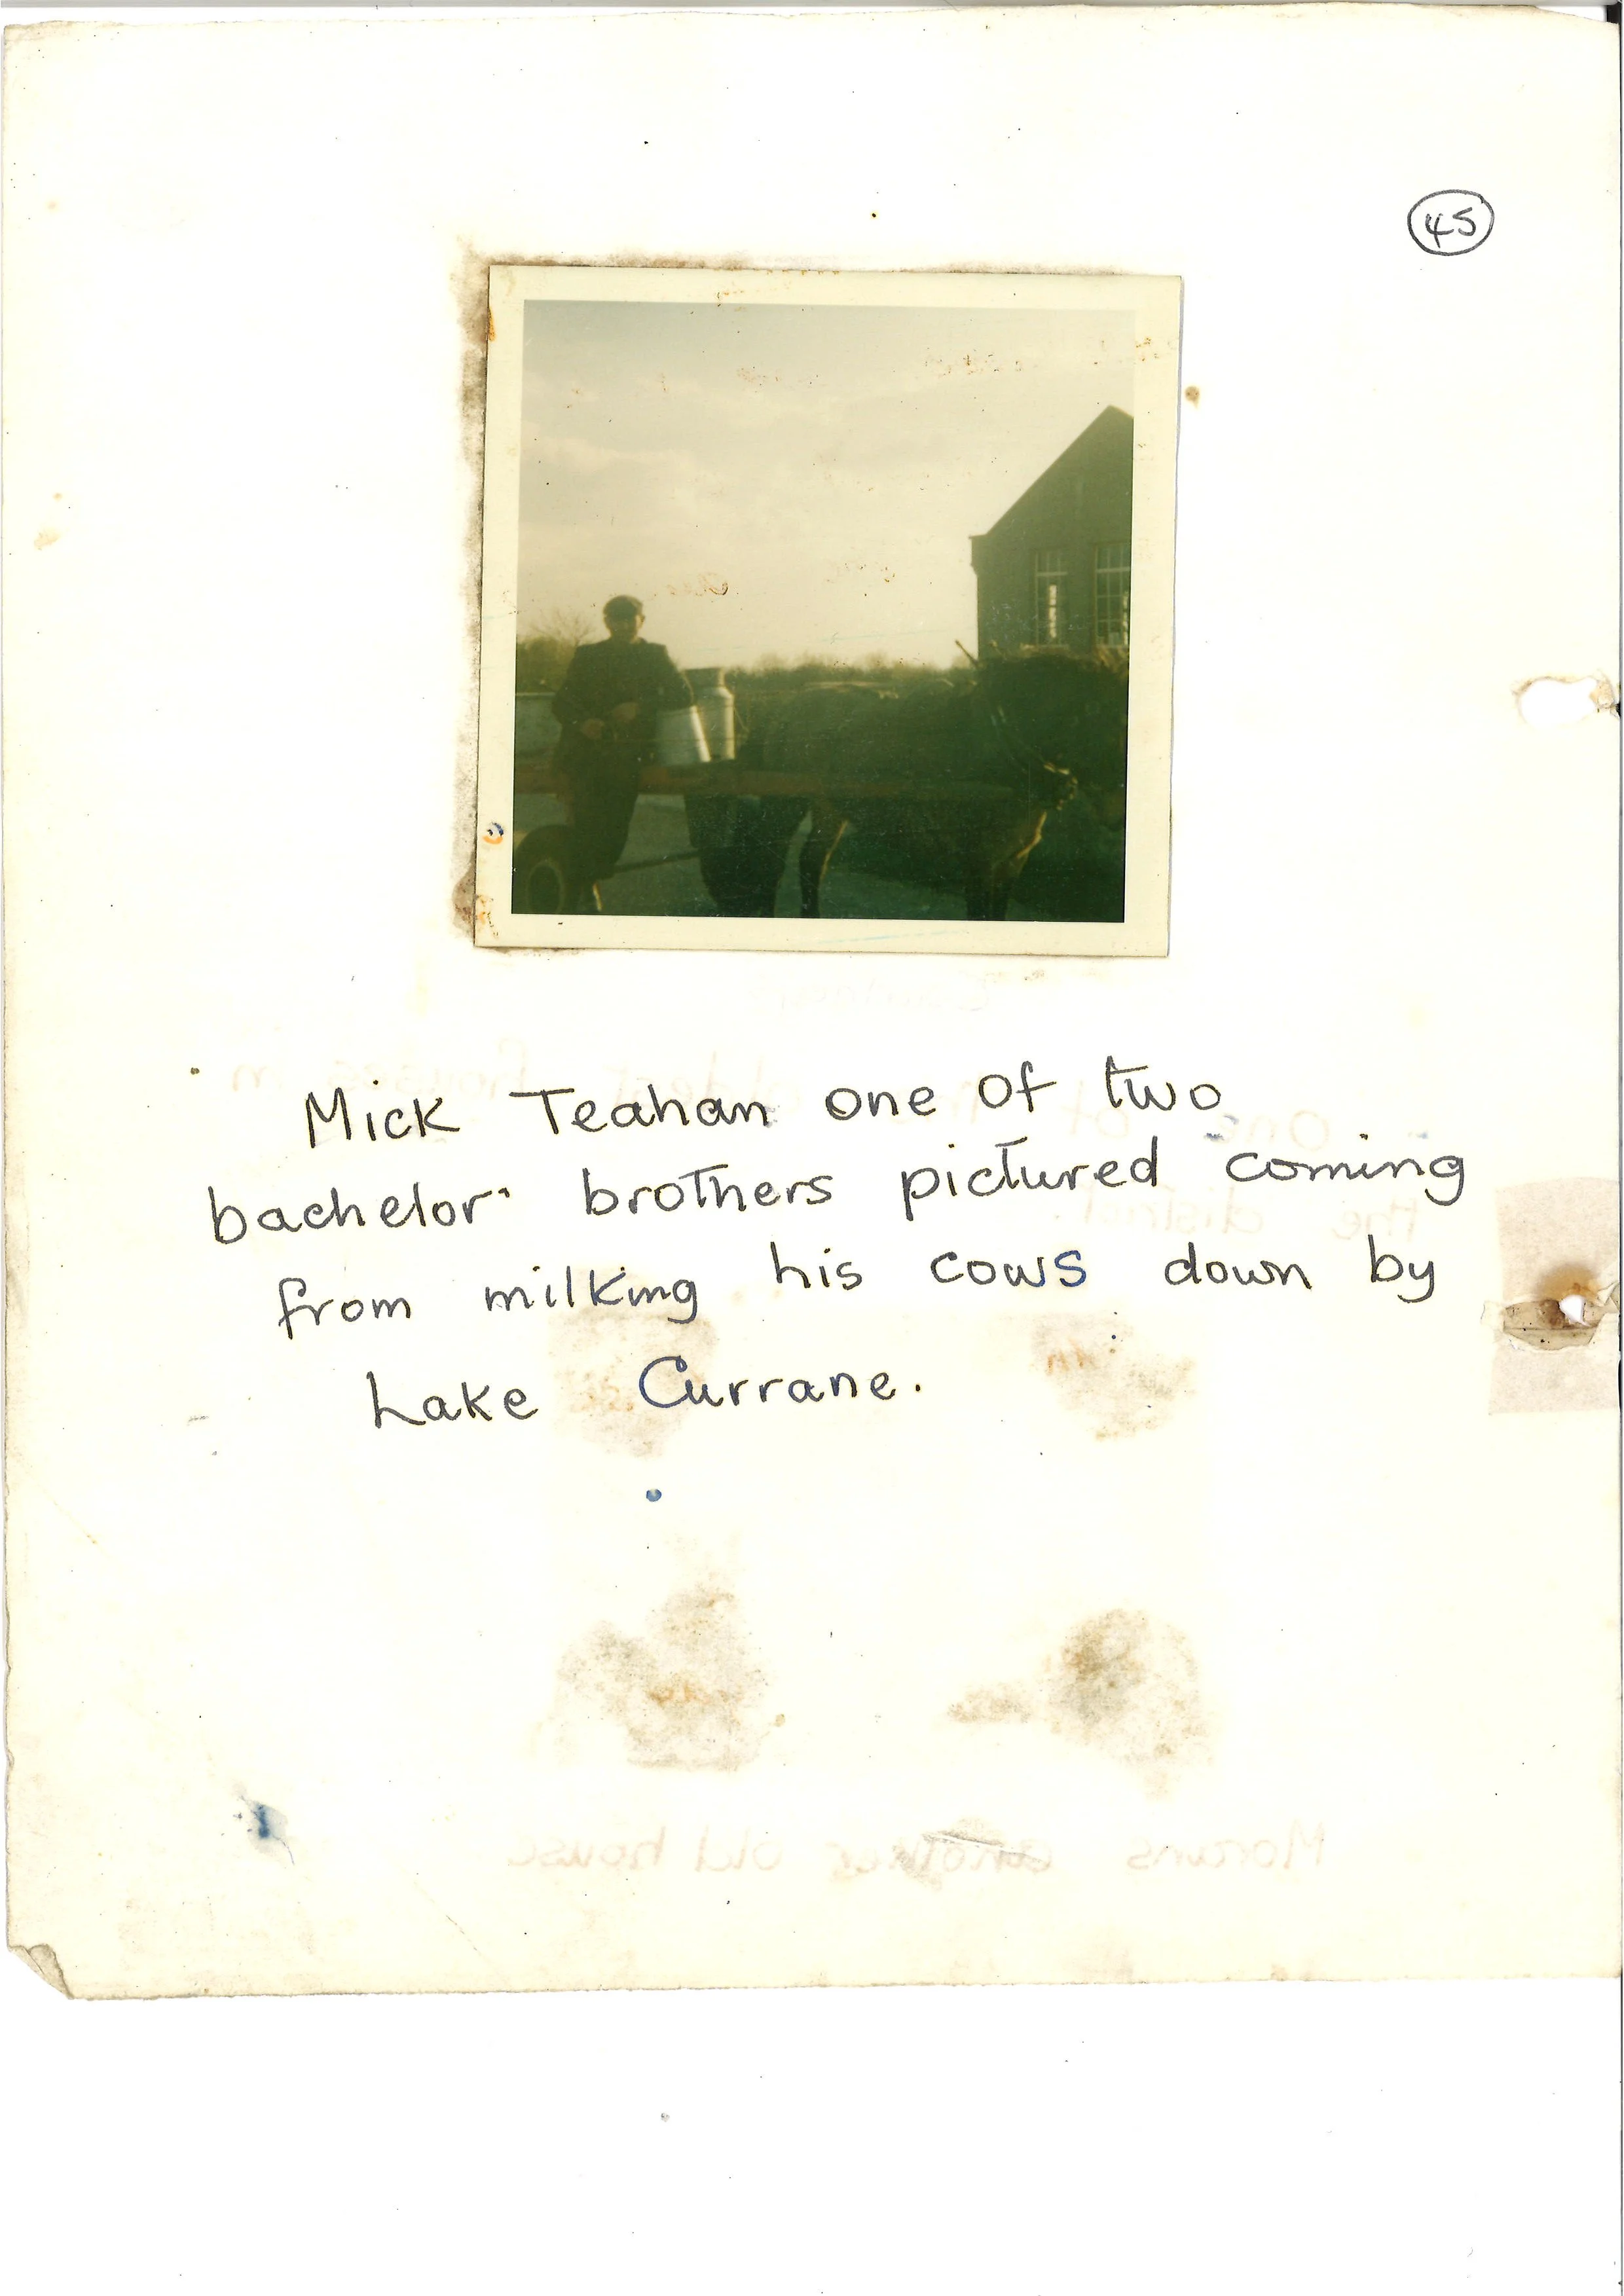 45
Mick Teahan one of two
bachelor brothers pictured coming
from milking his cows down by
Lake Currane.